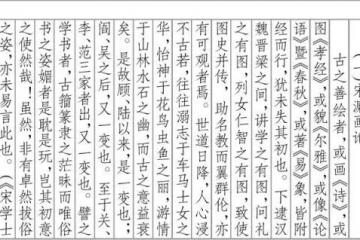 （一）宋濂画论
古之善绘者，或画《诗》，或
图《孝经》，或貌《尔雅》，或像《论
语》暨《春秋》，或著《易》象，皆附
经而行，犹未失其初也。下逮汉
魏晋梁之间，讲学之有图，问礼
之有图，列女仁智之有图，致使
图史并传，助名教而翼群伦，亦
有可观者焉。世道日降，人心浸
不古若，往往溺志于车马士女之
华，怡神于花鸟虫鱼之丽，游情
于山林水石之幽，而古之意益衰
矣。是故顾、陆以来，是一变也；
阎、吴之后，又一变也。至于关、
李、范三家者出，又一变也。譬之
学书者，古籀篆隶之茫昧而唯俗
书之姿媚者是耽是玩，岂其初意
之使然哉！虽然，非有卓然拔俗
之姿，亦未易言此也。（《宋学士